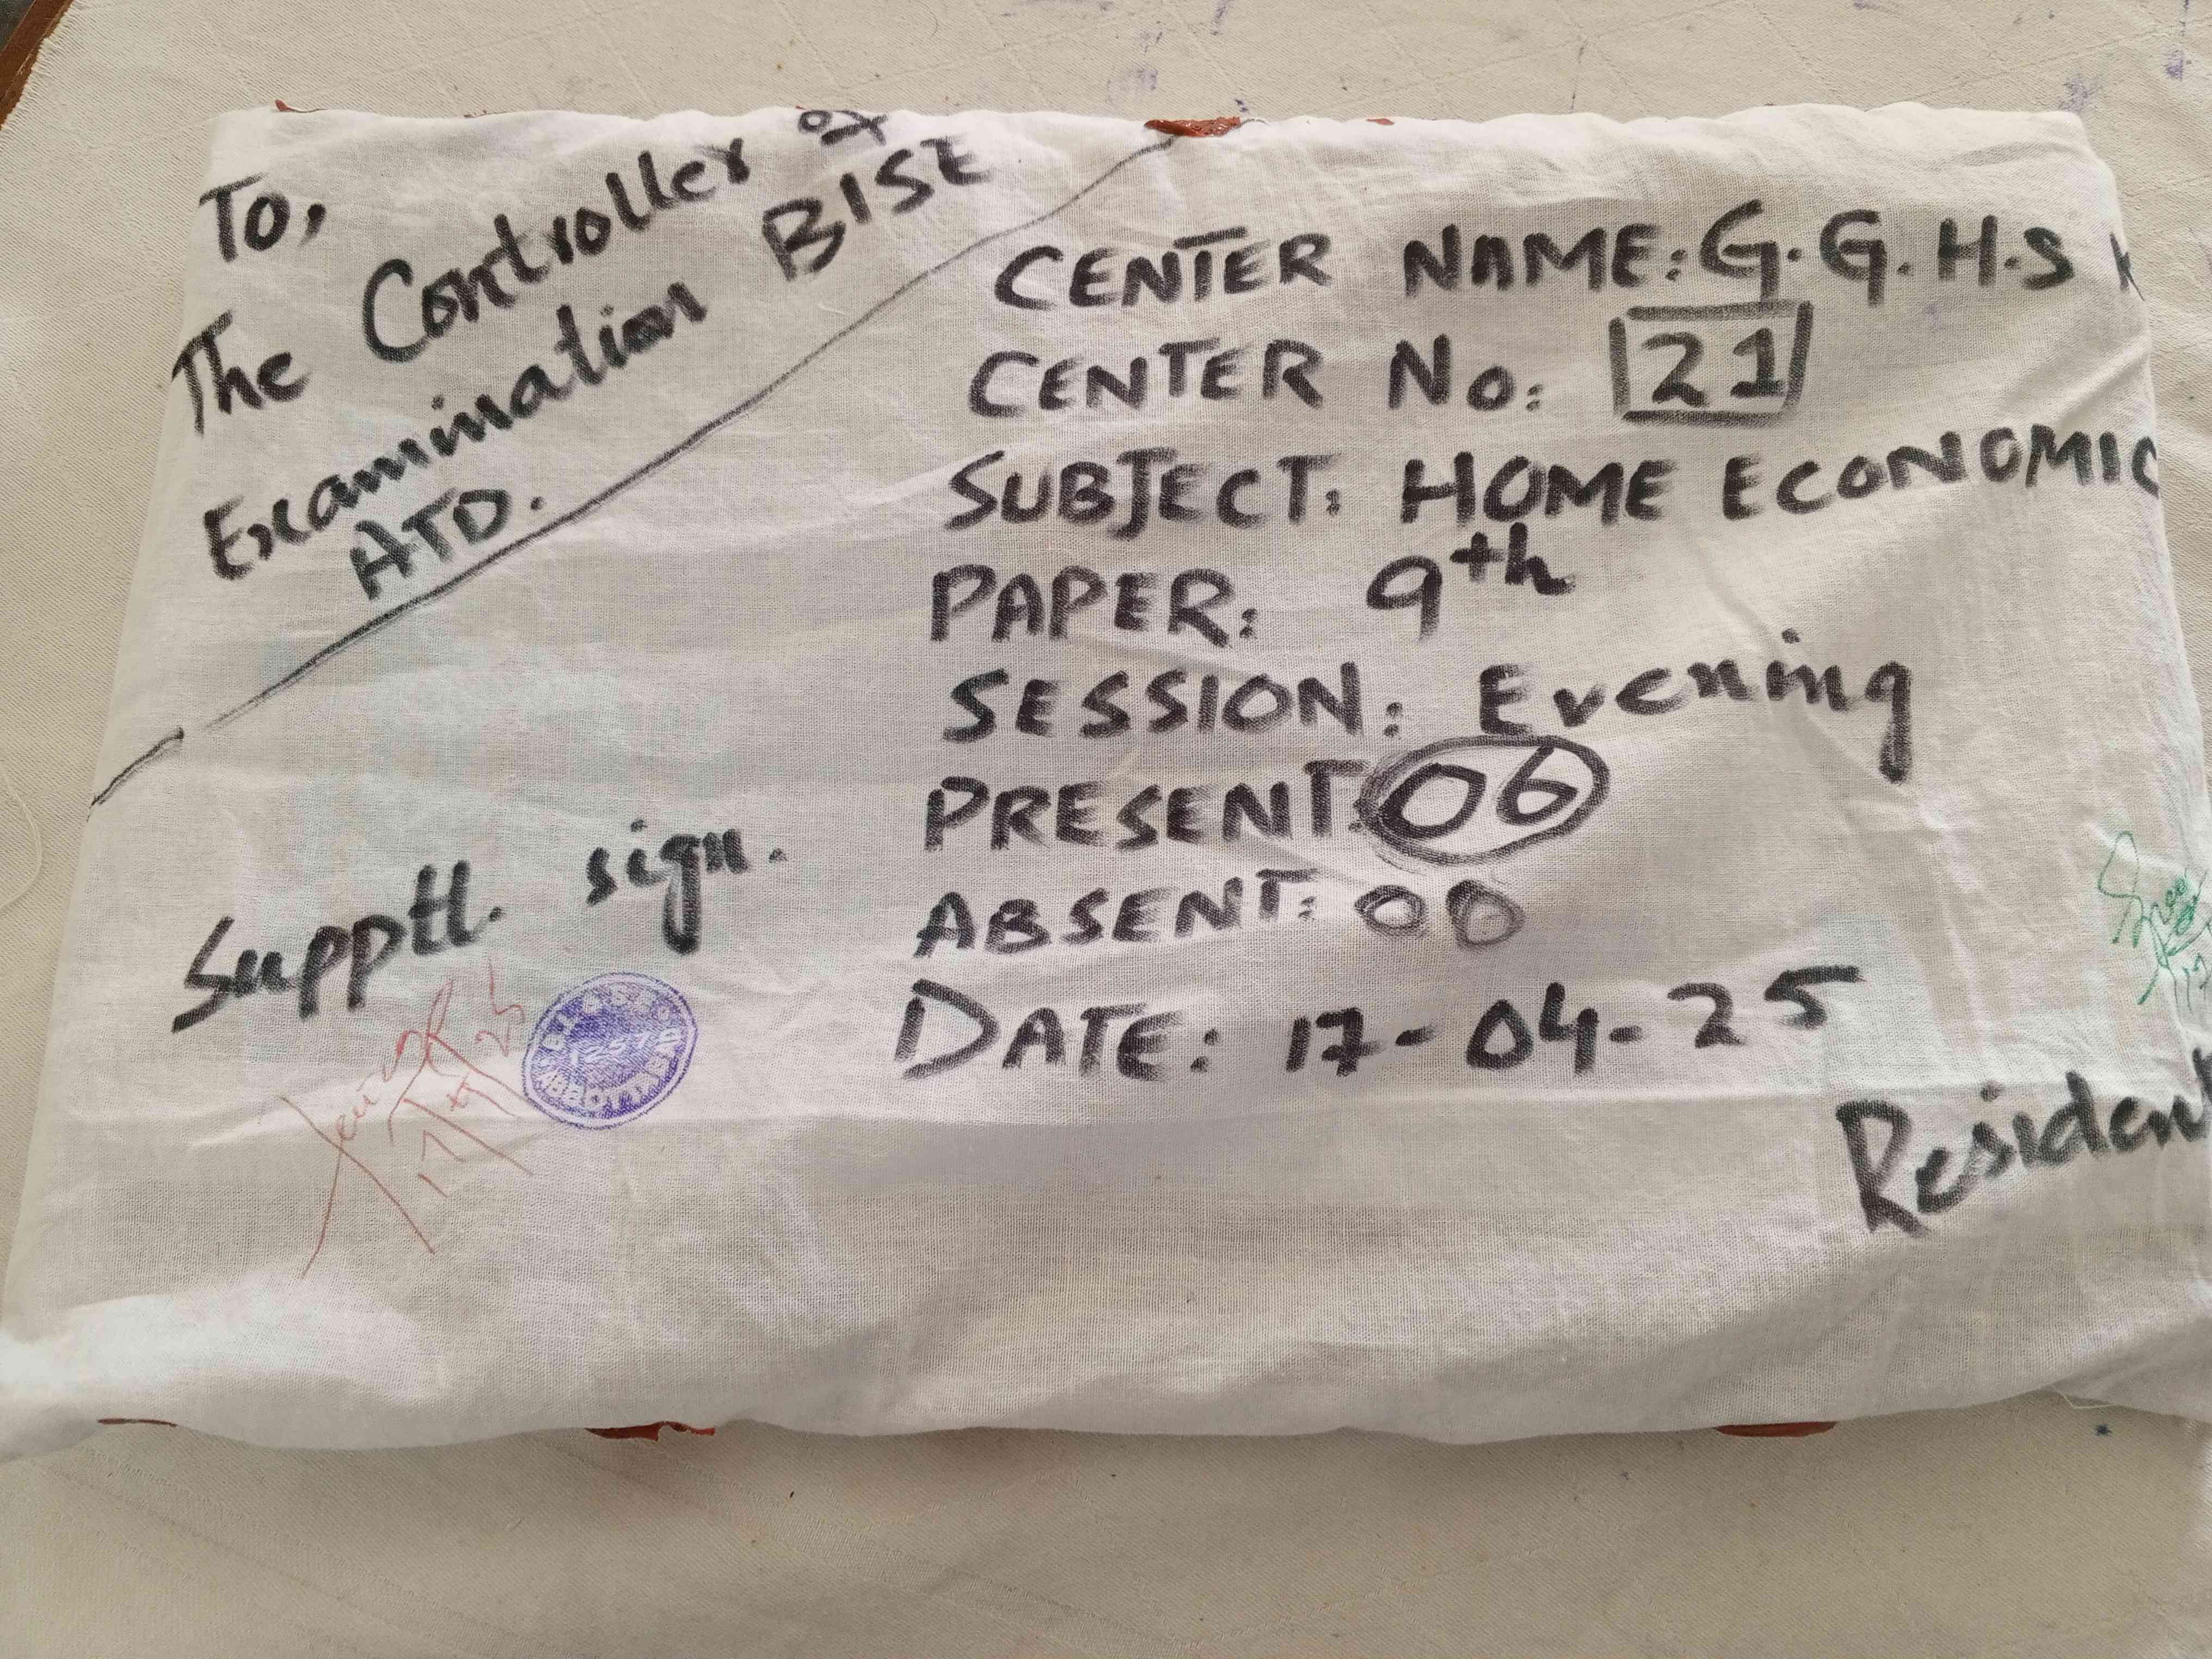 To,
The Controller of
Examination BISE
ATD.
CENTER NAME: G.G.H.S
CENTER No: 21
SUBJECT: HOME ECONOMIC
PAPER: 9th
SESSION: Evening
PRESENT: 06
ABSENT: 00
DATE: 17-04-25
Supptt. sign.
17/4/25
ABBOTTABAD
Residen